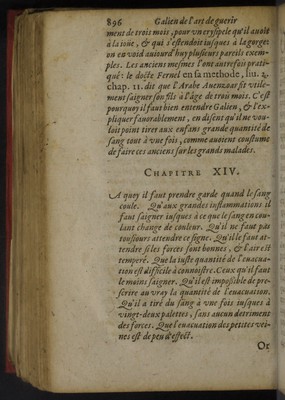 896 Galien de l'art de guerir
ment de trois mois, pour vn erysipele qu'il auoit
à la ioue, & qui s'estendoit iusques à la gorge:
on en void auiourd'huy plusieurs pareils exem-
ples. Les anciens mesmes l'ont autrefois prati-
qué: le docte Fernel en sa methode, liu. 2.
chap. 11. dit que l'Arabe Auenzoar fit vtile-
ment saigner son fils à l'âge de trois mois. C'est
pourquoy il faut bien entendre Galien, & l'ex-
pliquer fauorablement, en disent qu'il ne vou-
loit point tirer aux enfans grande quantité de
sang tout à vne fois, comme auoient coustume
de faire ces anciens sur les grands malades.
CHAPITRE XIV.
A quoy il faut prendre garde quand le sang
coule. Qu'aux grandes inflammations il
faut saigner iusques à ce que le sang en cou-
lant change de couleur. Qu'il ne faut pas
tousiours attendre ce signe. Qu'il le faut at-
tendre si les forces sont bonnes, & l'air est
temperé. Que la iuste quantité de l'euacua-
tion est difficile à connoistre. Ceux qu'il faut
le moins saigner. Qu'il est impossible de pre-
scrire au vray la quantité de l'euacuation.
Qu'il a tiré du sang à vne fois iusques à
vingt-deux palettes, sans aucun detriment
des forces. Que l'euacuation des petites vei-
nes est de peu d'effect.
Or